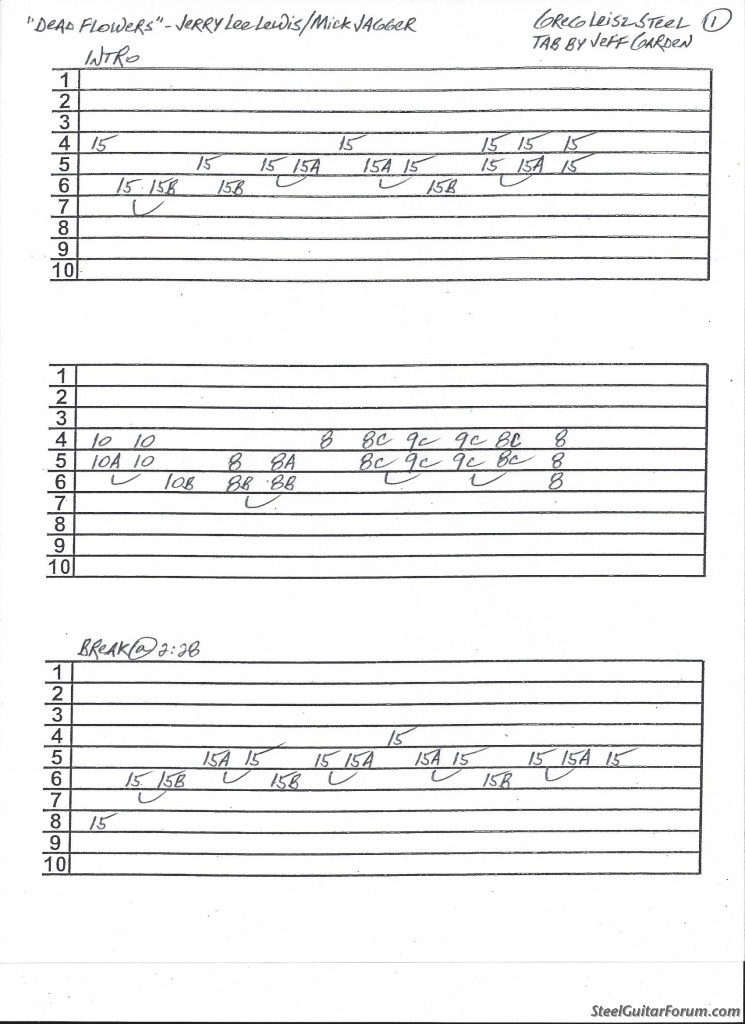 "DEAD FLOWERS" - JERRY LEE LEWIS/MICK JAGGER GREG LEISZ STEEL 1
TAB BY JEFF GARDEN
INTRO
1
2
3
4 15 15 15 15 15
5 15 15 15A 15A 15 15 15A 15
6 15 15B 15B 15B
7
8
9
10
1
2
3
4 10 10 8 8C 9C 9C 8C 8
5 10A 10 8 8A 8C 9C 9C 8C 8
6 10B 8B 8B 8
7
8
9
10
BREAK @ 2:28
1
2
3
4 15
5 15A 15 15 15A 15A 15 15 15A 15
6 15 15B 15B 15B
7
8 15
9
10
SteelGuitarForum.com